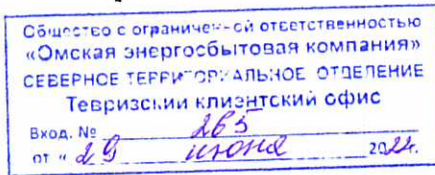 Общество с ограниченной ответственностью
«Омская энергосбытовая компания»
СЕВЕРНОЕ ТЕРРИТОРИАЛЬНОЕ ОТДЕЛЕНИЕ
Тевризский клиентский офис
Вход. № 265
от « 29 июня 2022г.